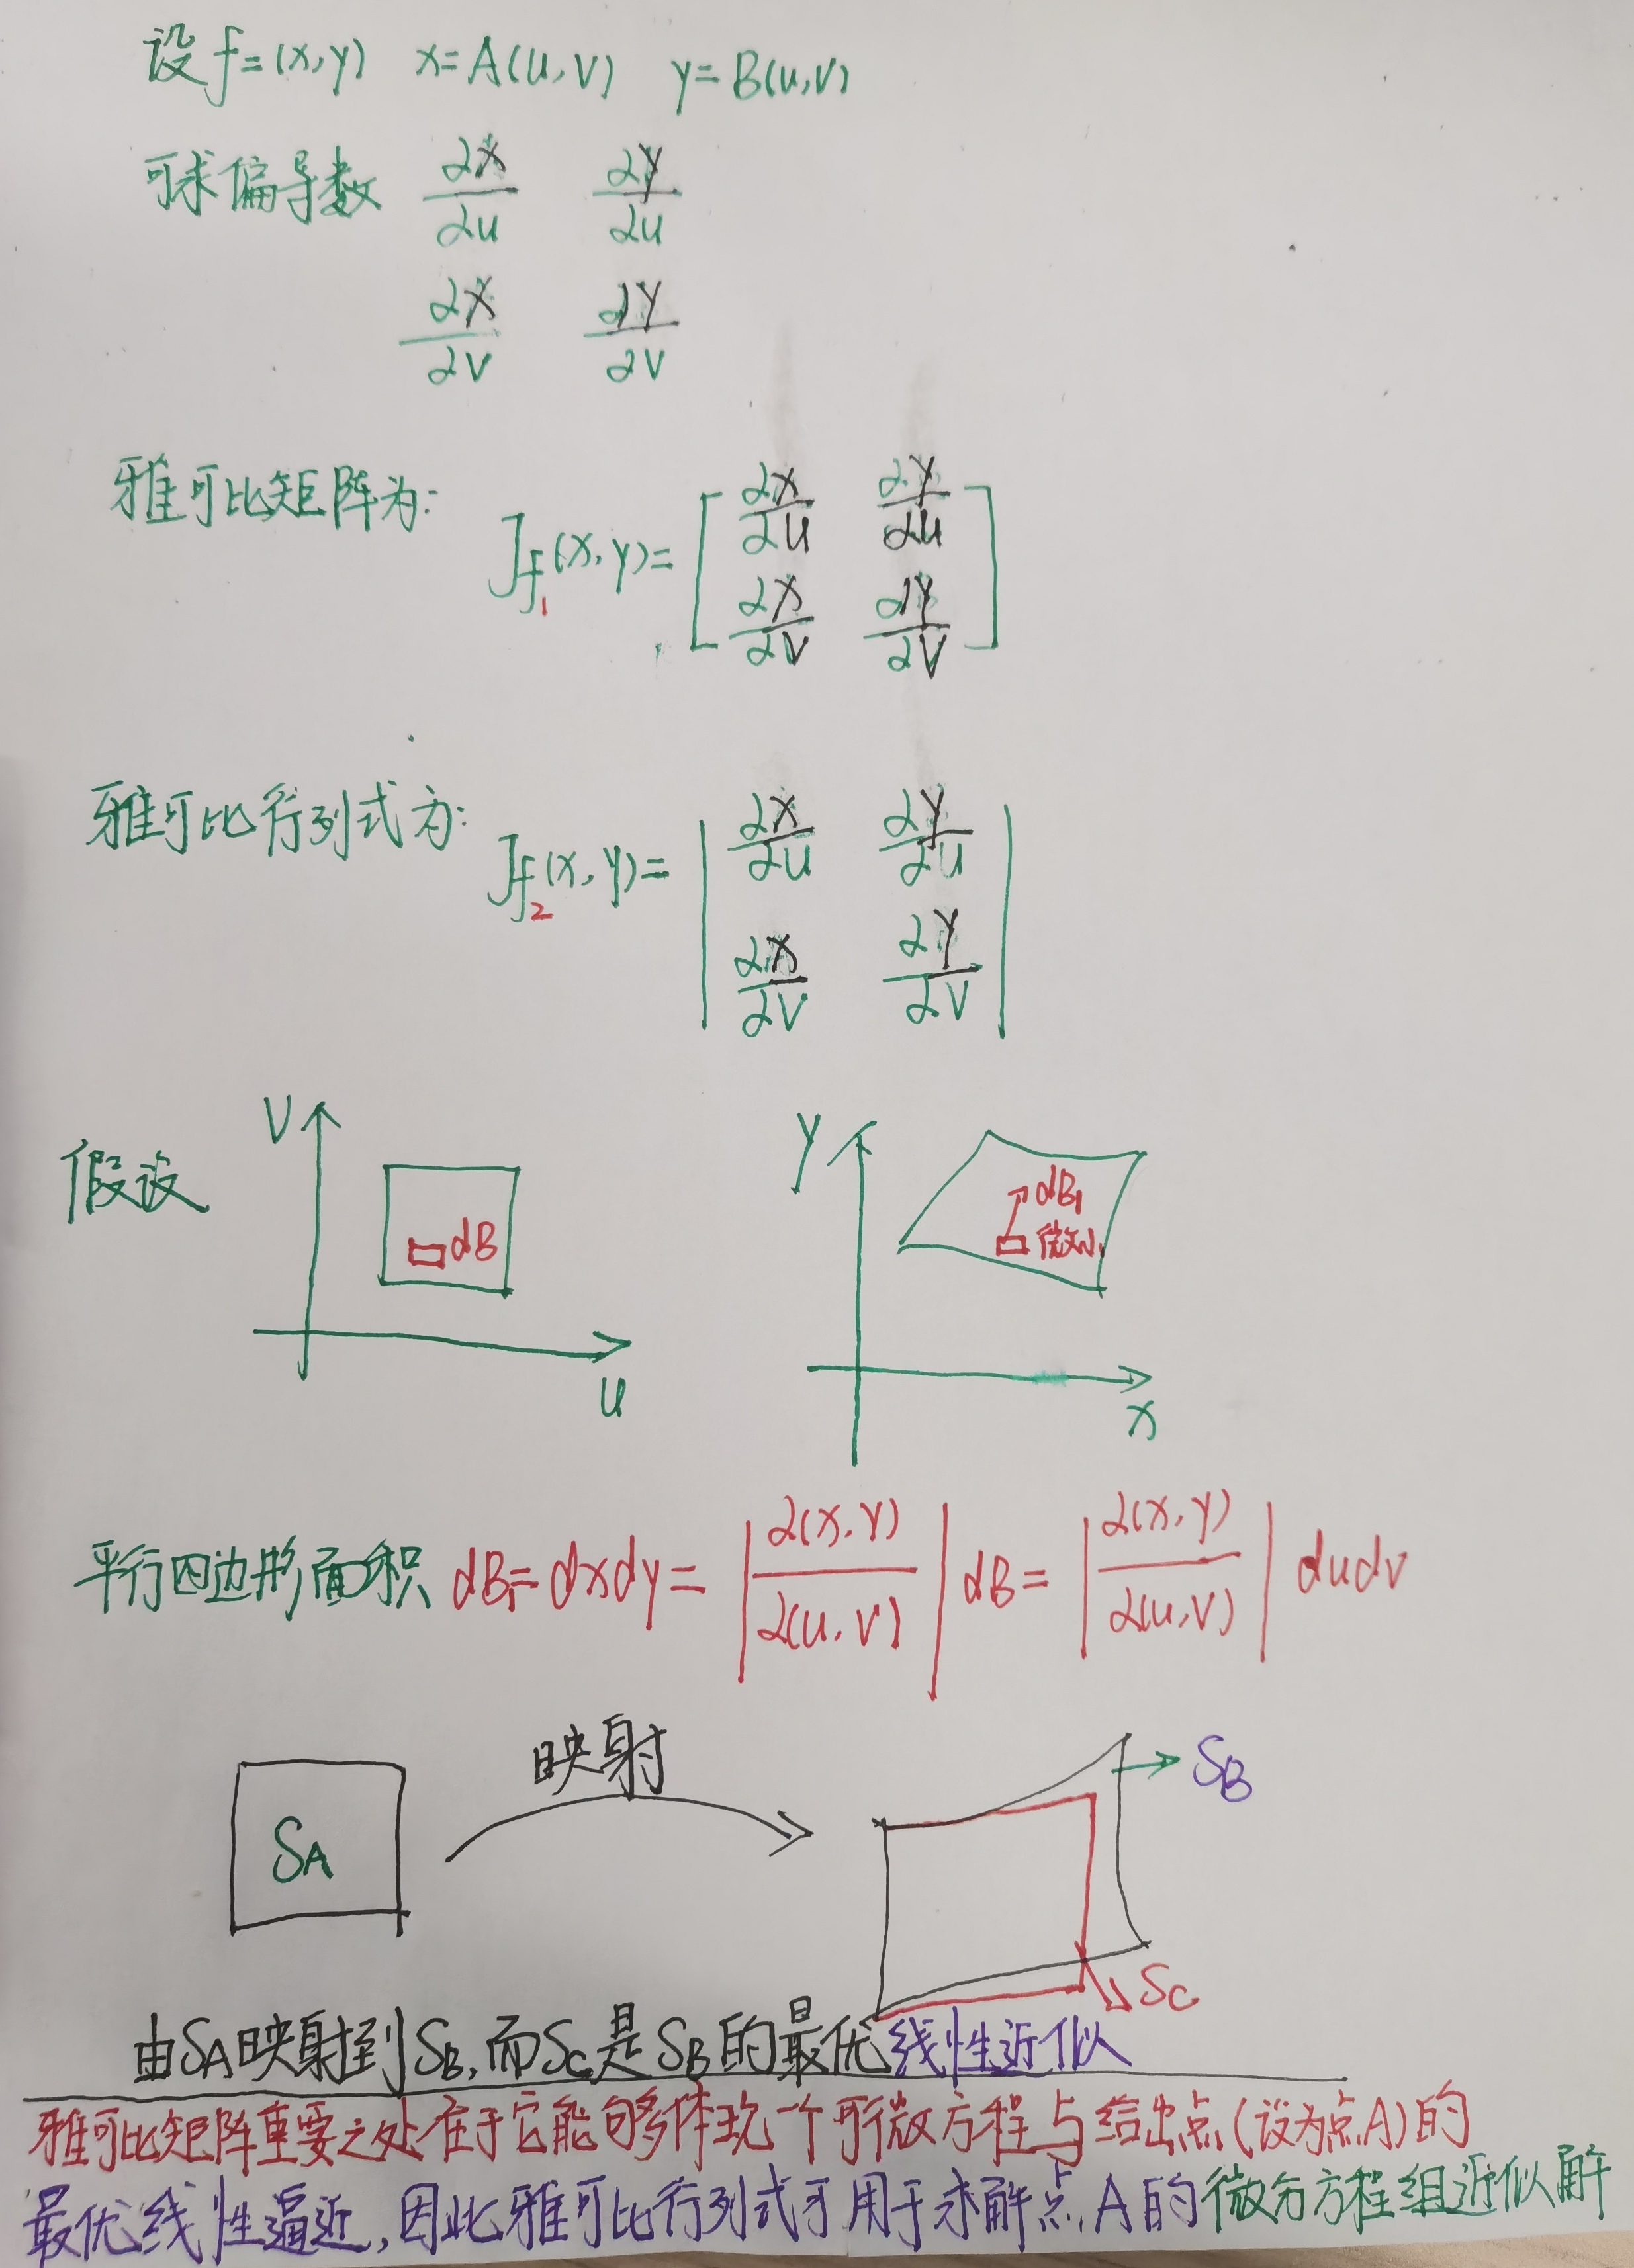 设f=(x,y) x=A(u,v) y=B(u,v)
可求偏导数 ∂x/∂u ∂y/∂u
∂x/∂v ∂y/∂v
雅可比矩阵为:
Jf₁(x,y)= [∂x/∂u ∂y/∂u
∂x/∂v ∂y/∂v]
雅可比行列式为:
Jf₂(x,y)= |∂x/∂u ∂y/∂u
∂x/∂v ∂y/∂v|
假设
V
dB
u
y
dB₁
微小
x
平行四边形面积 dB₁=dxdy=|∂(x,y)/∂(u,v)|dB=|∂(x,y)/∂(u,v)|dudv
映射
SA
SB
Sc
由SA映射到SB,而Sc是SB的最优线性近似
雅可比矩阵重要之处在于它能够体现一个可微方程与给出点(设为点A)的
最优线性逼近,因此雅可比行列式可用于求解点A的微分方程组近似解